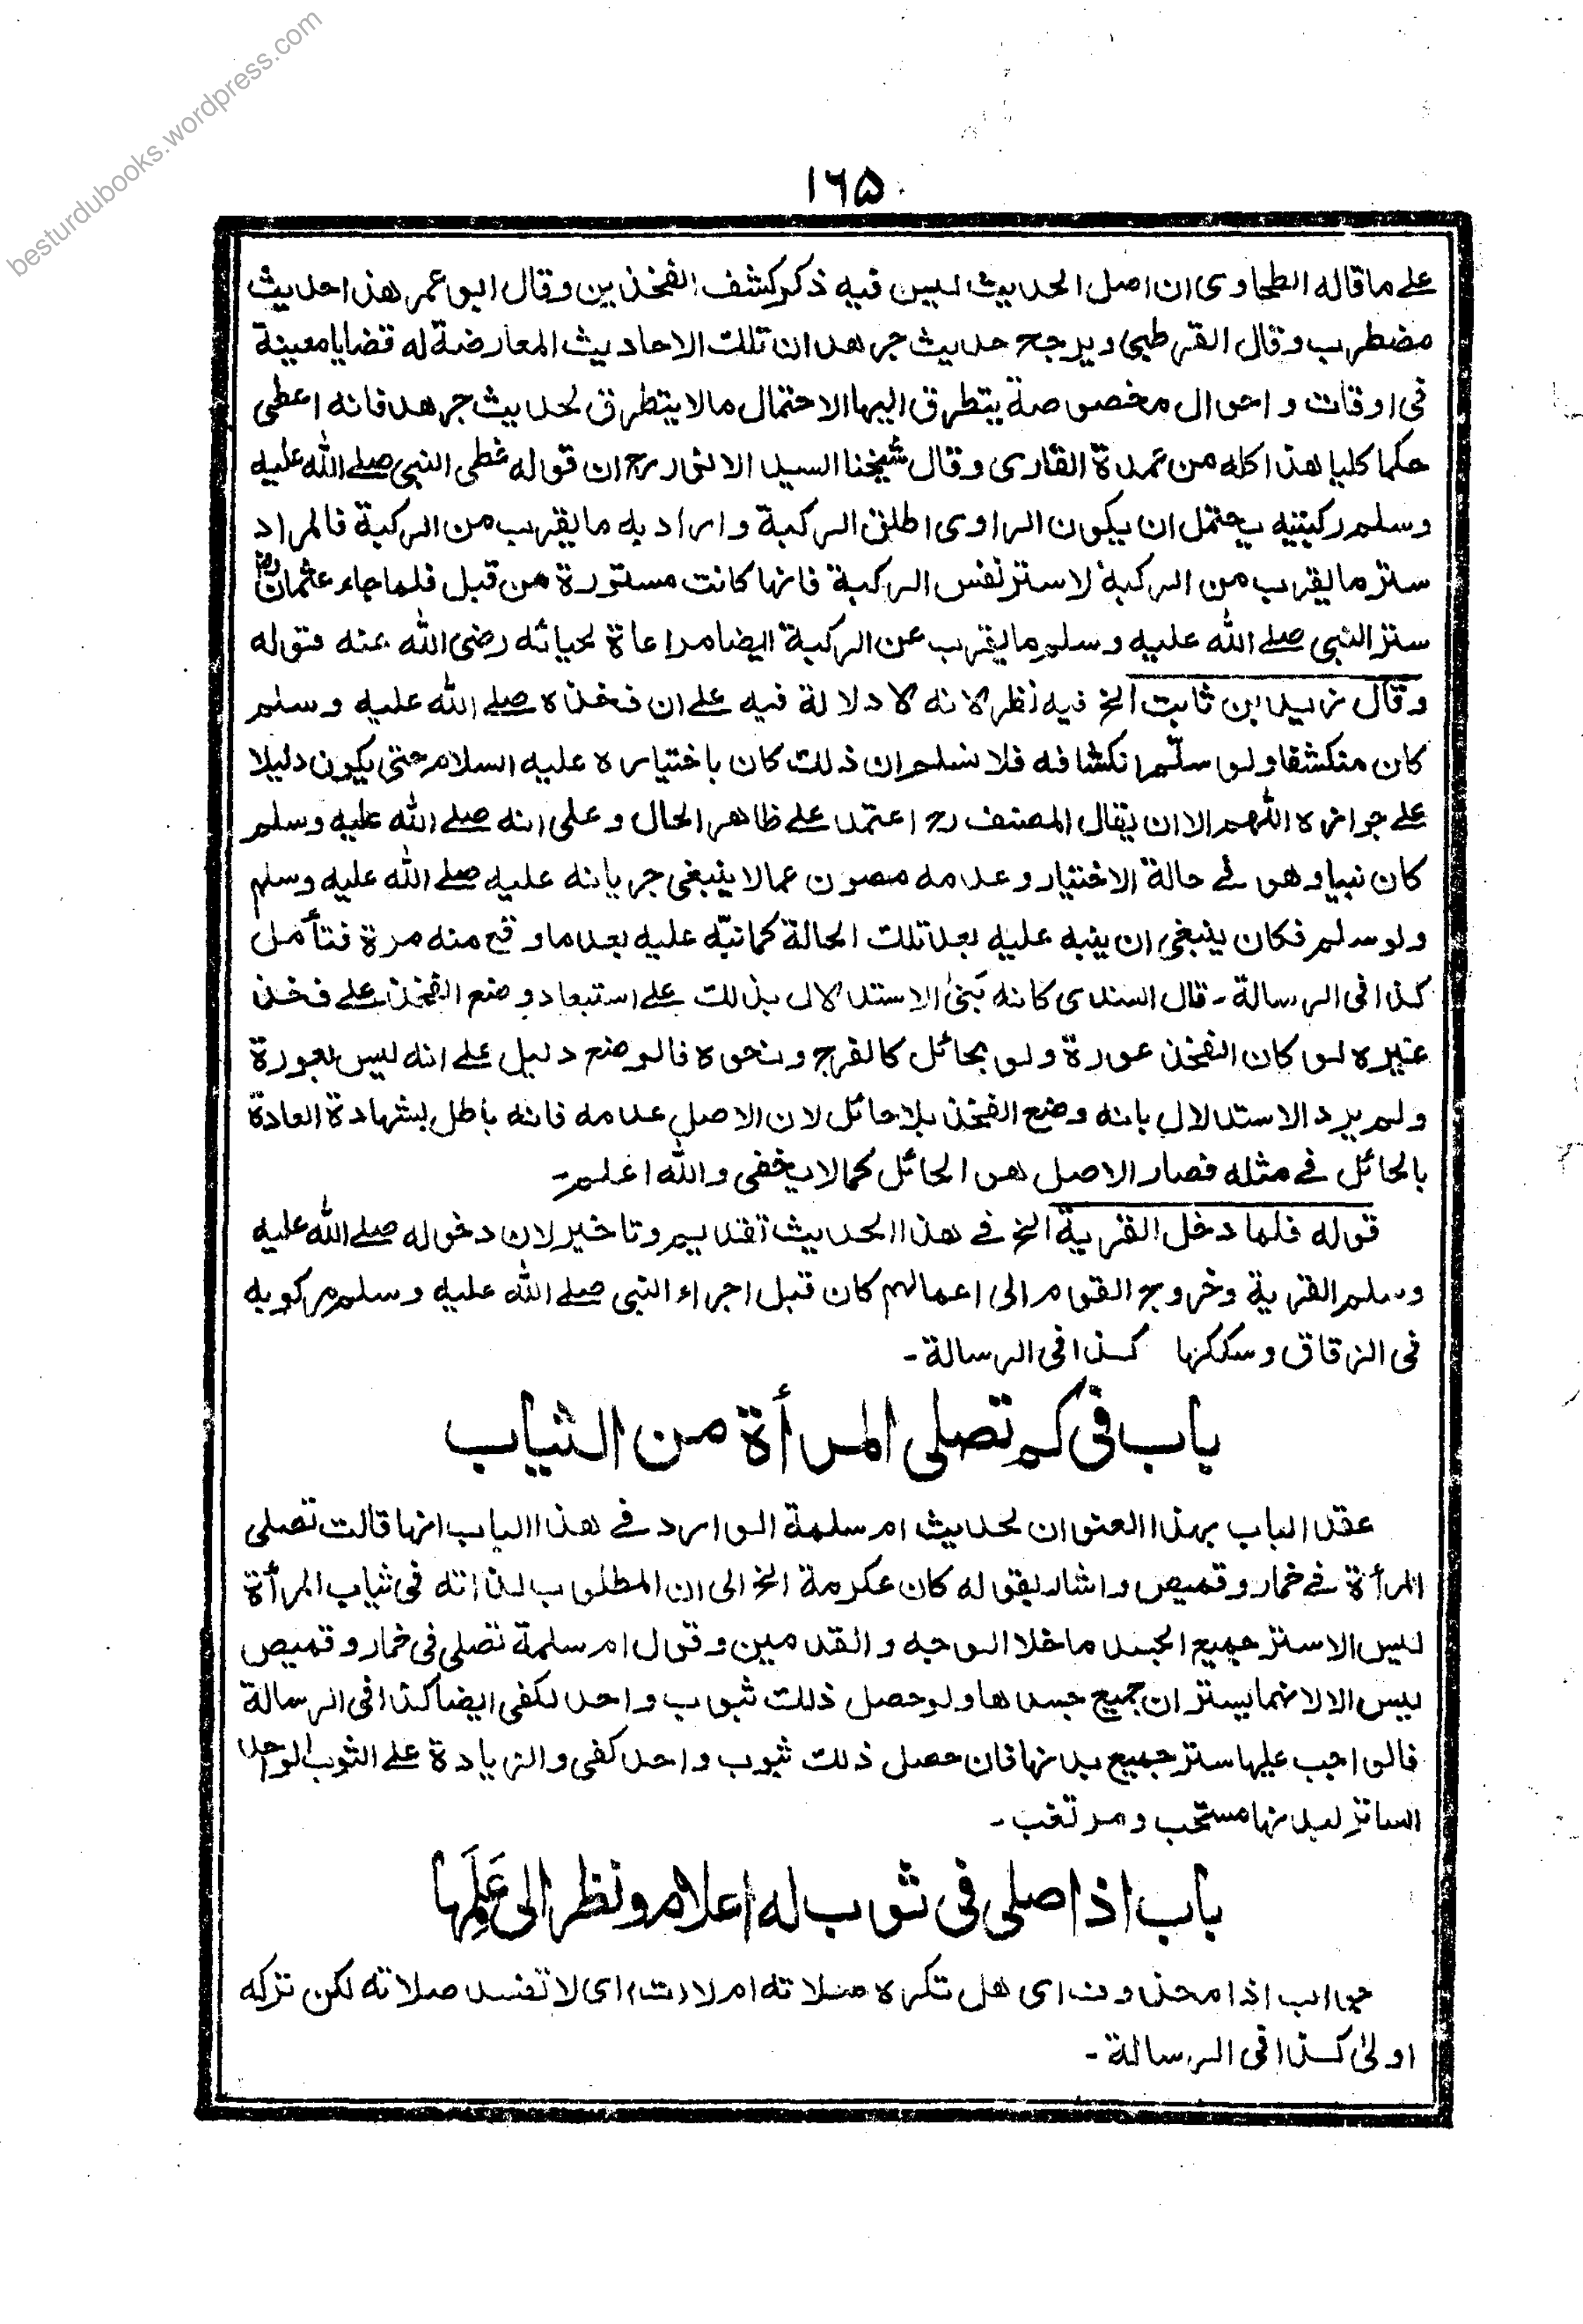 besturdubooks.wordpress.com
۱۶۵
علے ما قاله الطحاوی ان اصل الحدیث لیس فیه ذکر کشف الفخذین وقال ابو عمر هذا حدیث
مضطرب وقال القرطبی ویرجح حدیث جرهد ان تلك الاحادیث المعارضة له قضایا معینة
فی اوقات و احوال مخصوصة یتطرق الیها الاحتمال مالا یتطرق لحدیث جرهد فانه اعطی
حکما کلیا هذا کله من عمدة القاری وقال شیخنا السید الانور رح ان قوله غطی النبی صلے الله علیه
وسلم رکبتیه یحتمل ان یکون الراوی اطلق الرکبة و اراد به ما یقرب من الرکبة فالمراد
ستر ما یقرب من الرکبة لا ستر نفس الرکبة فانها کانت مستورة من قبل فلما جاء عثمان رض
ستر النبی صلے الله علیه وسلم ما یقرب عن الرکبة ایضا مراعاة لحیائه رضی الله عنه قوله
وقال زید بن ثابت الخ فیه نظر لانه لا دلالة فیه علے ان فخذه صلے الله علیه وسلم
کان منکشفا ولو سلّم انکشافه فلا نسلم ان ذلك کان باختیاره علیه السلام حتی یکون دلیلا
علے جوازه اللهم الا ان یقال المصنف رح اعتمد علے ظاهر الحال و علی انه صلے الله علیه وسلم
کان نبیا وهو فے حالة الاختیار وعدمه مصون عما لا ینبغی جریانه علیه صلے الله علیه وسلم
ولو سلم فکان ینبغی ان ینبه علیه بعد تلك الحالة کما نبّه علیه بعد ما وقع منه مرة فتأمل
کذا فی الرسالة - قال السندی کانه بَنیٰ الاستدلال بذلك علے استبعاد وضع الفخذ علے فخذ
غیره لو کان الفخذ عورة ولو بحائل کالفرج ونحوه فالوضع دلیل علے انه لیس بعورة
ولم یرد الاستدلال بانه وضع الفخذ بلا حائل لان الاصل عدمه فانه باطل بشهادة العادة
بالحائل فے مثله فصار الاصل هو الحائل کما لا یخفی والله اعلم -
قوله فلما دخل القریة الخ فے هذا الحدیث تقدیم وتاخیر لان دخوله صلے الله علیه
وسلم القریة وخروج القوم الی اعمالهم کان قبل اجراء النبی صلے الله علیه وسلم مرکوبه
فی الزقاق وسککها کذا فی الرسالة -
باب فی کم تصلی المرأة من الثیاب
عقد الباب بهذا العنوان لحدیث ام سلمة الوارد فے هذا الباب انها قالت تصلی
المرأة فے خمار وقمیص واشار بقوله کان عکرمة الخ الی ان المطلوب لذاته فی ثیاب المرأة
لیس الا ستر جمیع الجسد ما خلا الوجه والقدمین وقول ام سلمة تصلی فی خمار وقمیص
لیس الا لانهما یستران جمیع جسدها ولو حصل ذلك بثوب واحد لکفی ایضا کذا فی الرسالة
فالواجب علیها ستر جمیع بدنها فان حصل ذلك بثوب واحد کفی والزیادة علے الثوب الواحد
الساتر لبدنها مستحب ومرتغب -
باب اذا صلی فی ثوب له اعلام ونظر الی عَلَمِها
جواب اذا محذوف ای هل تکره صلاته ام لا ای لا تفسد صلاته لکن ترکه
اولیٰ کذا فی الرسالة -